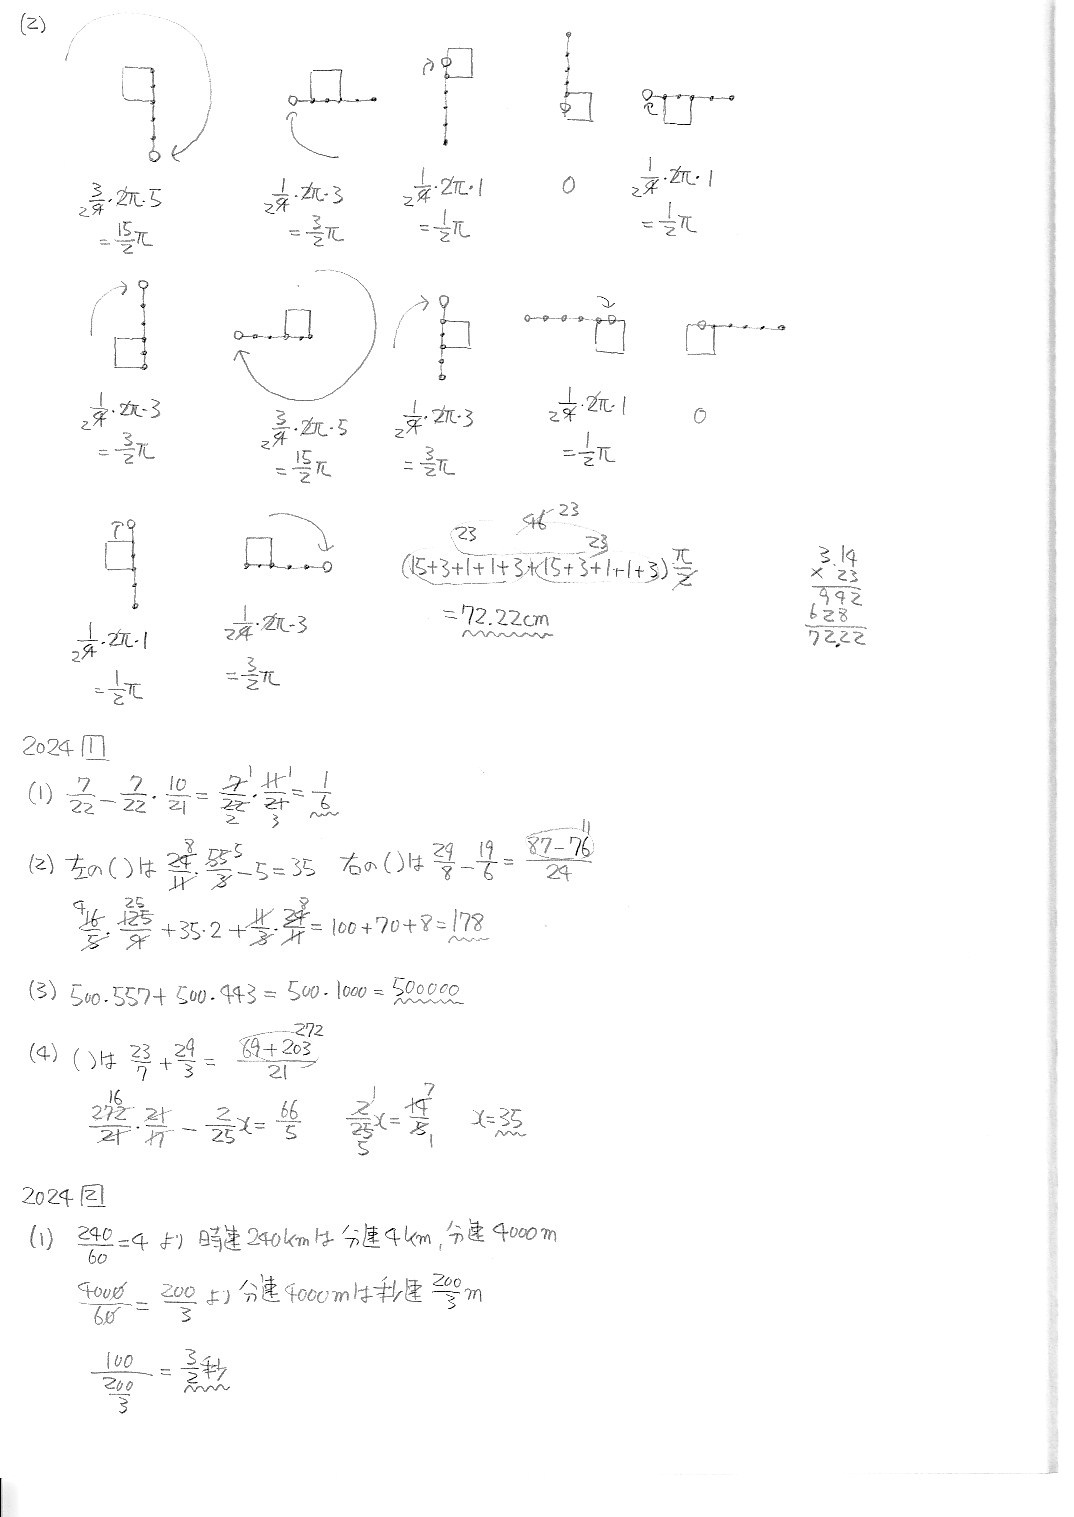 (2)
3/4・2π・5 1/4・2π・3 1/4・2π・1 0 1/4・2π・1
2 2 2 2
= 15/2 π = 3/2 π = 1/2 π = 1/2 π
1/4・2π・3 3/4・2π・5 1/4・2π・3 1/4・2π・1 0
2 2 2 2
= 3/2 π = 15/2 π = 3/2 π = 1/2 π
46 23
23 23
1/4・2π・1 1/4・2π・3 (15+3+1+1+3+15+3+1+1+3) π/2
2 2
= 1/2 π = 3/2 π = 72.22cm
3.14
× 23
942
628
72.22
2024 1
(1) 7/22 - 7/22・10/21 = 7/22・11/21 = 1/6
1 1 2 3
(2) 左の( )は 24/11・55/3 - 5 = 35 右の( )は 29/8 - 19/6 = (87-76)/24
8 5 11
16/5・125/4 + 35・2 + 11/3・24/11 = 100+70+8 = 178
4 25 8
(3) 500・557+500・443 = 500・1000 = 500000
(4) ( )は 23/7 + 29/3 = (69+203)/21
272
272/21・21/17 - 2/25 x = 66/5 2/25 x = 14/5 x = 35
16 1 5 7 1
2024 2
(1) 240/60 = 4 より 時速240kmは 分速4km, 分速4000m
4000/60 = 200/3 より 分速4000mは秒速 200/3 m
100/(200/3) = 3/2 秒